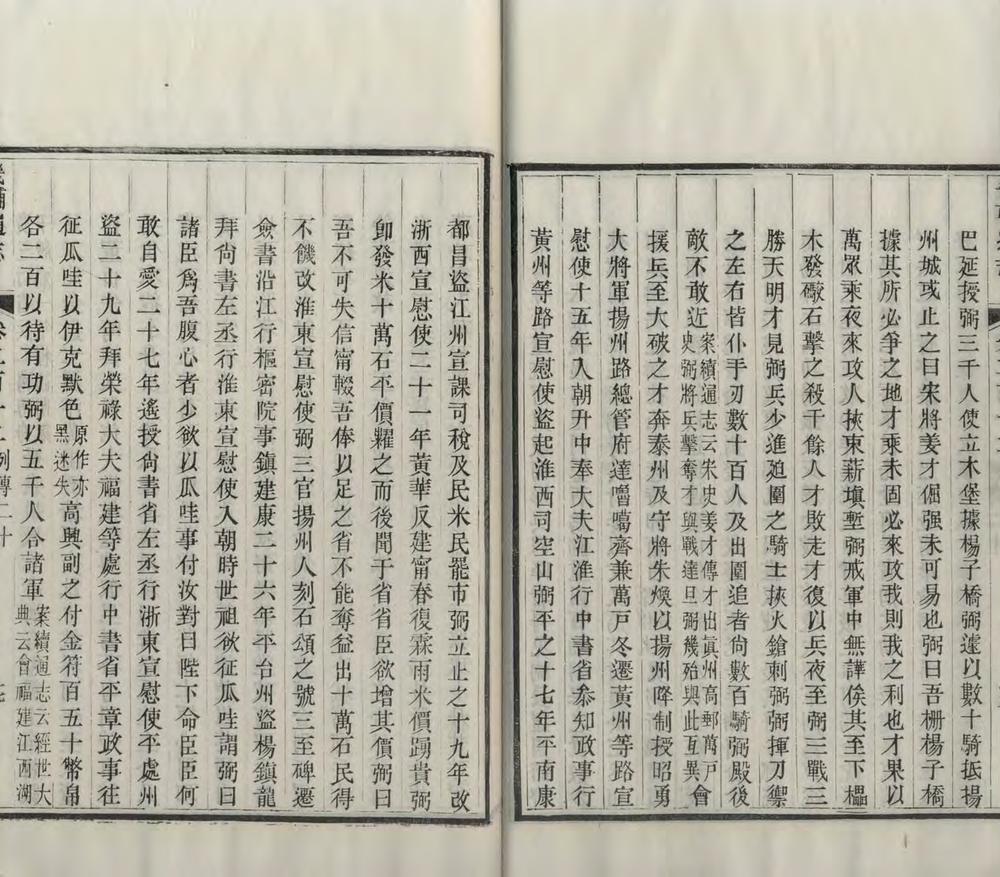 巴延授弼三千人使立木堡據楊子橋弼遽以數十騎抵揚
州城或止之曰宋將姜才倔强未可易也弼曰吾栅楊子橋
據其所必爭之地才乘未固必來攻我則我之利也才果以
萬眾乘夜來攻人挾束薪塡塹弼戒軍中無譁俟其至下櫑
木發礮石擊之殺千餘人才敗走才復以兵夜至弼三戰三
勝天明才見弼兵少進廹圍之騎士挾火鎗刺弼弼揮刀禦
之左右皆仆手刃數十百人及出圍追者尙數百騎弼殿後
敵不敢近案續通志云宋史姜才傳才出眞州高郵萬戸史弼將兵擊奪才與戰達旦弼幾殆與此互異會
援兵至大破之才奔泰州及守將朱煥以揚州降制授昭勇
大將軍揚州路總管府達嚕噶齊兼萬戸冬遷黃州等路宣
慰使十五年入朝升中奉大夫江淮行中書省叅知政事行
黃州等路宣慰使盜起淮西司空山弼平之十七年平南康
都昌盜江州宣課司稅及民米民罷市弼立止之十九年改
浙西宣慰使二十一年黃華反建甯春復霖雨米價踴貴弼
卽發米十萬石平價糶之而後聞于省省臣欲增其價弼曰
吾不可失信甯輟吾俸以足之省不能奪益出十萬石民得
不饑改淮東宣慰使弼三官揚州人刻石頌之號三至碑遷
僉書沿江行樞密院事鎮建康二十六年平台州盜楊鎮龍
拜尙書左丞行淮東宣慰使入朝時世祖欲征瓜哇謂弼曰
諸臣爲吾腹心者少欲以瓜哇事付汝對曰陛下命臣臣何
敢自愛二十七年遙授尙書省左丞行浙東宣慰使平處州
盜二十九年拜榮祿大夫福建等處行中書省平章政事往
征瓜哇以伊克默色原作亦黑迷失高興副之付金符百五十幣帛
各二百以待有功弼以五千人合諸軍案續通志云經世大典云會福建江西湖